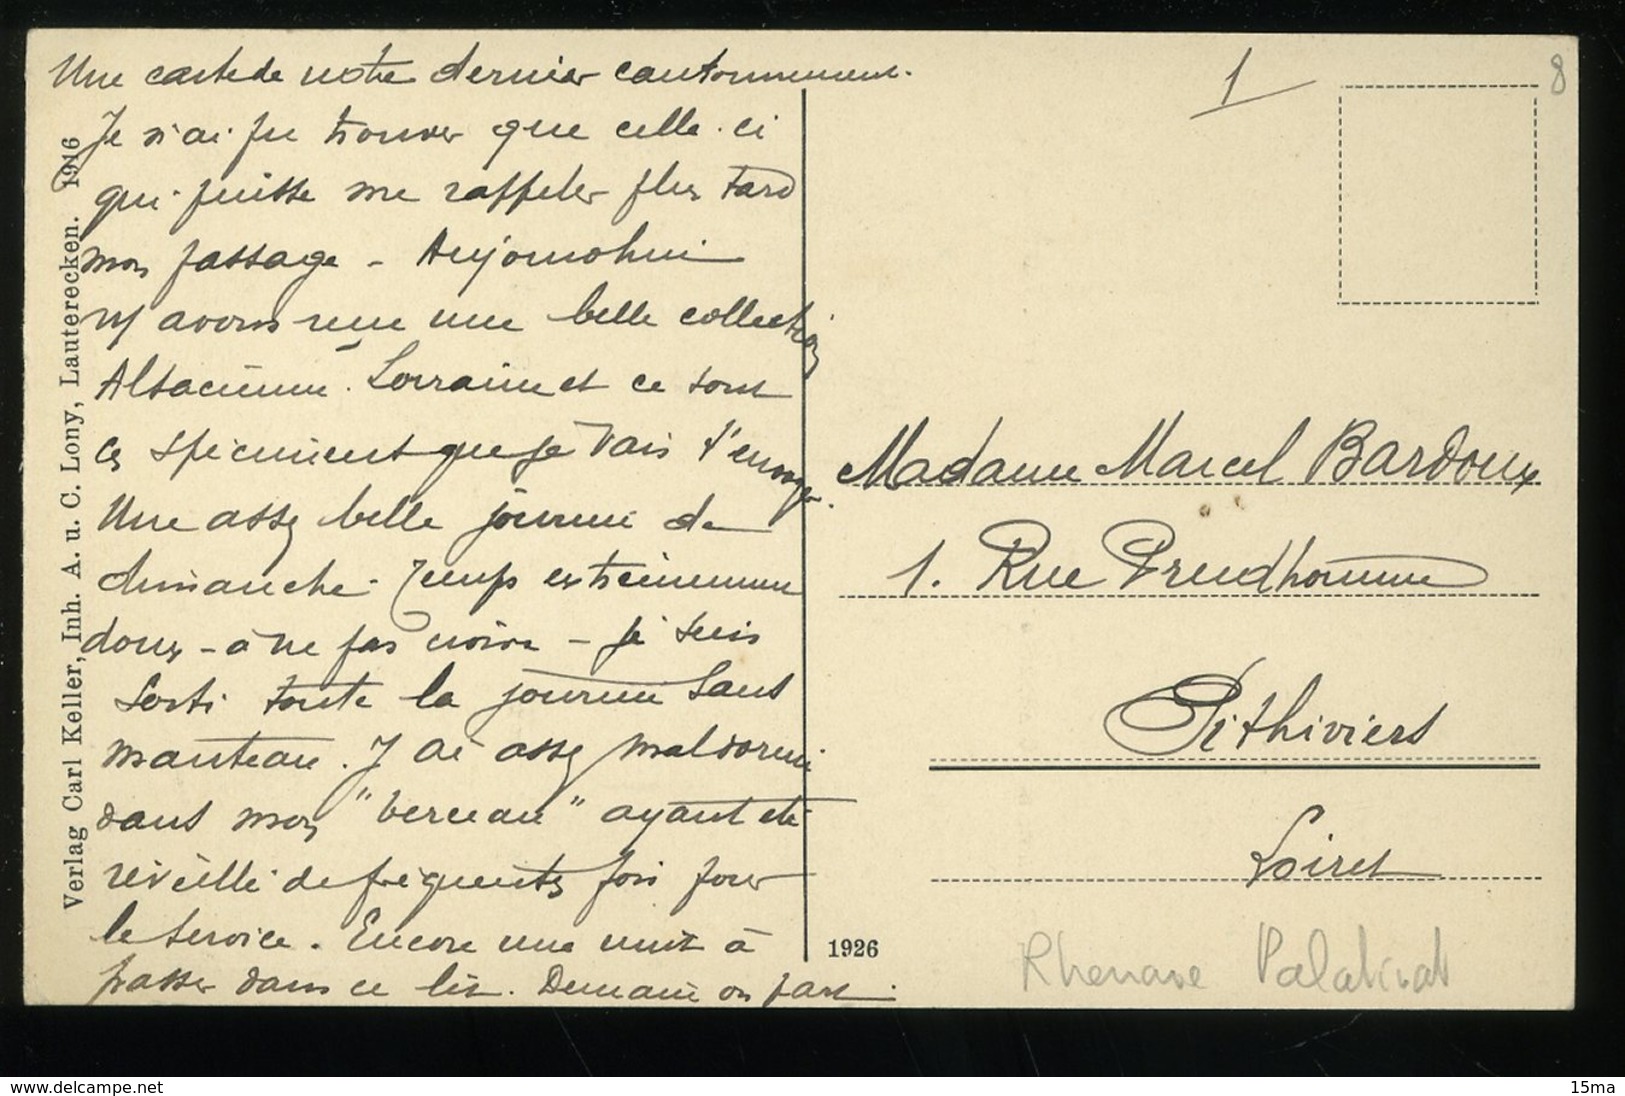 Une carte de notre dernier cantonnement.
Je n'ai pu trouver que celle-ci
qui puisse me rappeler plus tard
mon passage - Aujourdhui
ns avons reçu une belle collection
Alsacienne. Lorraine et ce sont
ces spécimens que je vais t'envoyer.
Une assez belle journée de
dimanche - Temps extrêmement
doux - à ne pas croire - je suis
sorti toute la journée sans
manteau. J'ai assez mal dormi
dans mon "berceau" ayant été
réveillé de fréquentes fois pour
le service. Encore une nuit à
passer dans ce lit. Demain on part.
Verlag Carl Keller, Inh. A. u. C. Lony, Lauterecken. 1916
1
8
Madame Marcel Bardoux
1. Rue Prudhomme
Pithiviers
Loiret
1926
Rhenanie Palatinat
www.delcampe.net
15ma